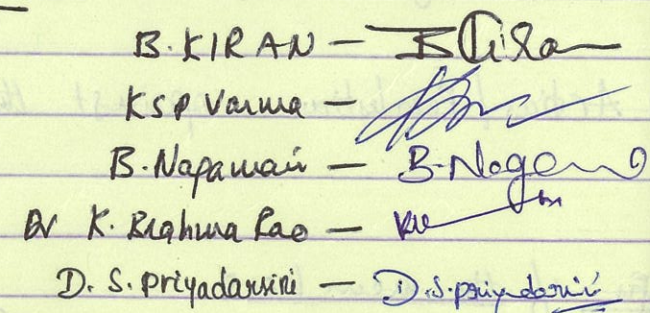 B. KIRAN – B Kiran
KSP Varma –
B. Nagamani – B. Nagam
Dr K. Brahma Rao –
D. S. Priyadarsini – D. S. priyadarsini